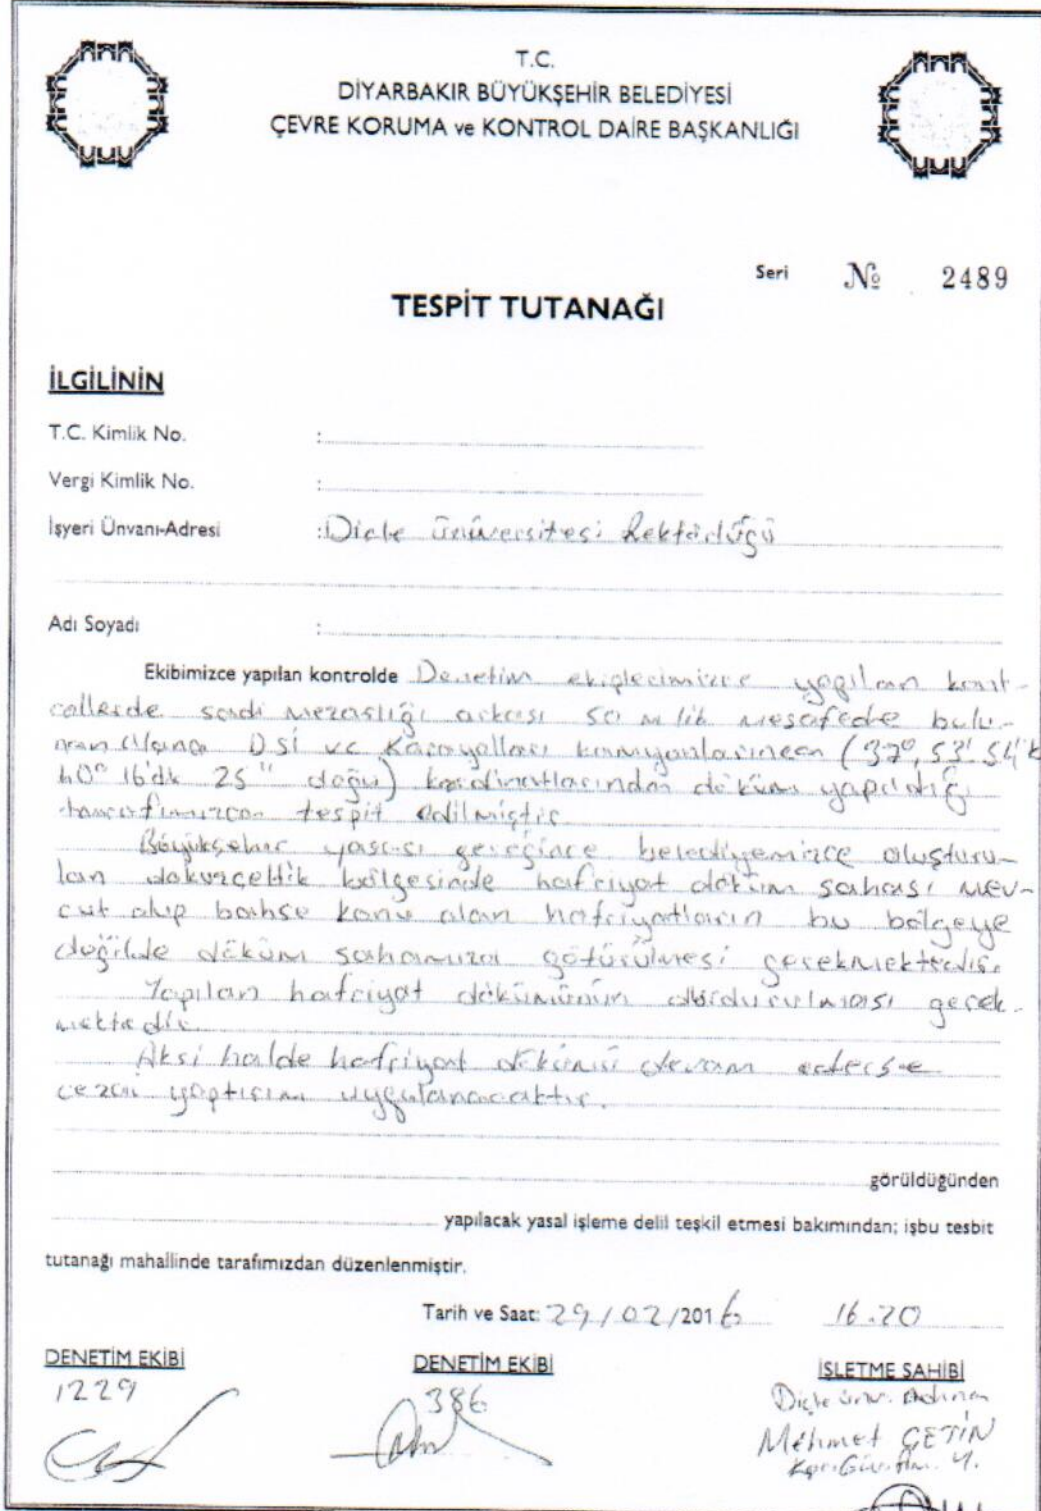 T.C.
DİYARBAKIR BÜYÜKŞEHİR BELEDİYESİ
ÇEVRE KORUMA ve KONTROL DAİRE BAŞKANLIĞI
Seri № 2489
TESPİT TUTANAĞI
İLGİLİNİN
T.C. Kimlik No. :
Vergi Kimlik No. :
İşyeri Ünvanı-Adresi :Dicle üniversitesi Rektörlüğü
Adı Soyadı :
Ekibimizce yapılan kontrolde Denetim ekiplerimizce yapılan kont-
rollerde sadi mezarlığı arkası 50 m lik mesafede bulu-
nan alana DSİ ve Karayolları kamyonlarınca (37°, 53'. 54" k
40° 16'dk 25" doğu) kordinatlarından döküm yapıldığı
tarafımızca tespit edilmiştir
Büyükşehir yasası gereğince belediyemizce oluşturu-
lan dokuzçeltik bölgesinde hafriyat döküm sahası mev-
cut olup bahse konu olan hafriyatların bu bölgeye
değilde döküm sahamıza götürülmesi gerekmektedir.
Yapılan hafriyat dökümünün durdurulması gerek-
mektedir.
Aksi halde hafriyat dökümü devam ederse
cezai yaptırım uygulanacaktır.
görüldüğünden
yapılacak yasal işleme delil teşkil etmesi bakımından; işbu tesbit
tutanağı mahallinde tarafımızdan düzenlenmiştir.
Tarih ve Saat: 29/02/2016 16.20
DENETİM EKİBİ DENETİM EKİBİ İŞLETME SAHİBİ
1229 386 Dicle üniv. Adına
Mehmet ÇETİN